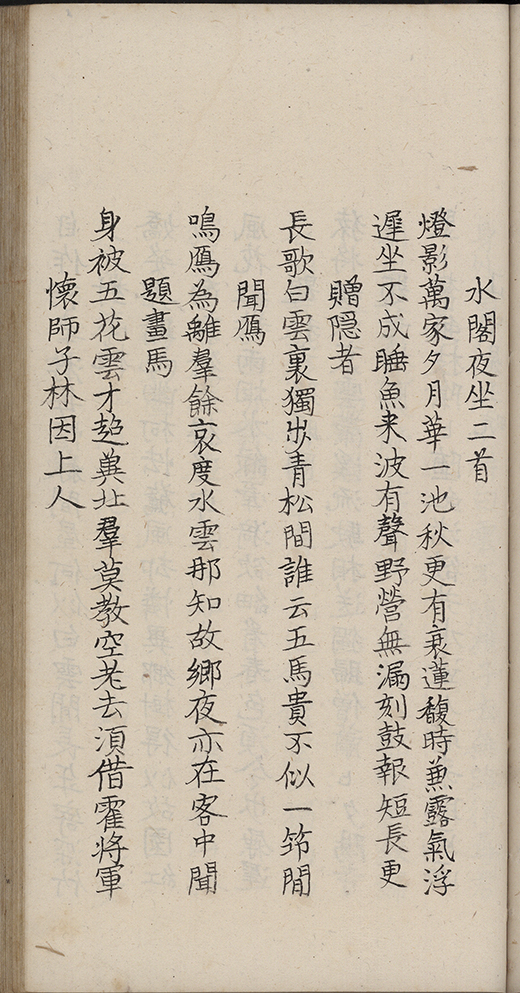 水閣夜坐二首
燈影萬家夕月華一池秋更有衰蓮馥時兼露氣浮
遲坐不成睡魚来波有聲野營無漏刻鼓報短長更
贈隠者
長歌白雲裏獨步青松間誰云五馬貴不似一筇閒
聞鴈
鳴鴈為離羣餘哀度水雲那知故鄉夜亦在客中聞
題畫馬
身被五花雲才超兾北羣莫教空老去須借霍將軍
懷師子林因上人